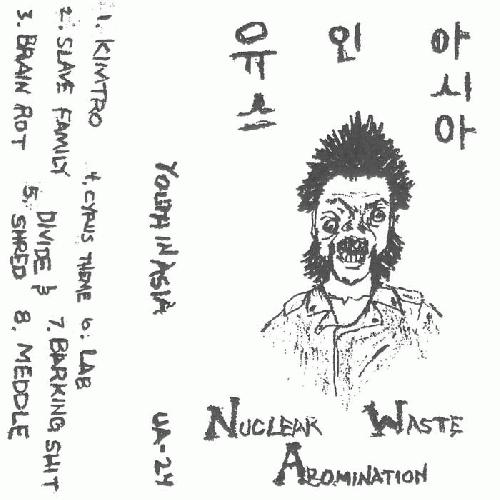 1. KIMTRO
2. SLAVE FAMILY
3. BRAIN ROT
4. CYRUS THEME
5. DIVIDE &
SHRED
6. LAB
7. BARKING SHIT
8. MEDDLE
YOUTH IN ASIA
UA-24
유스
인
아시아
NUCLEAR WASTE
ABOMINATION